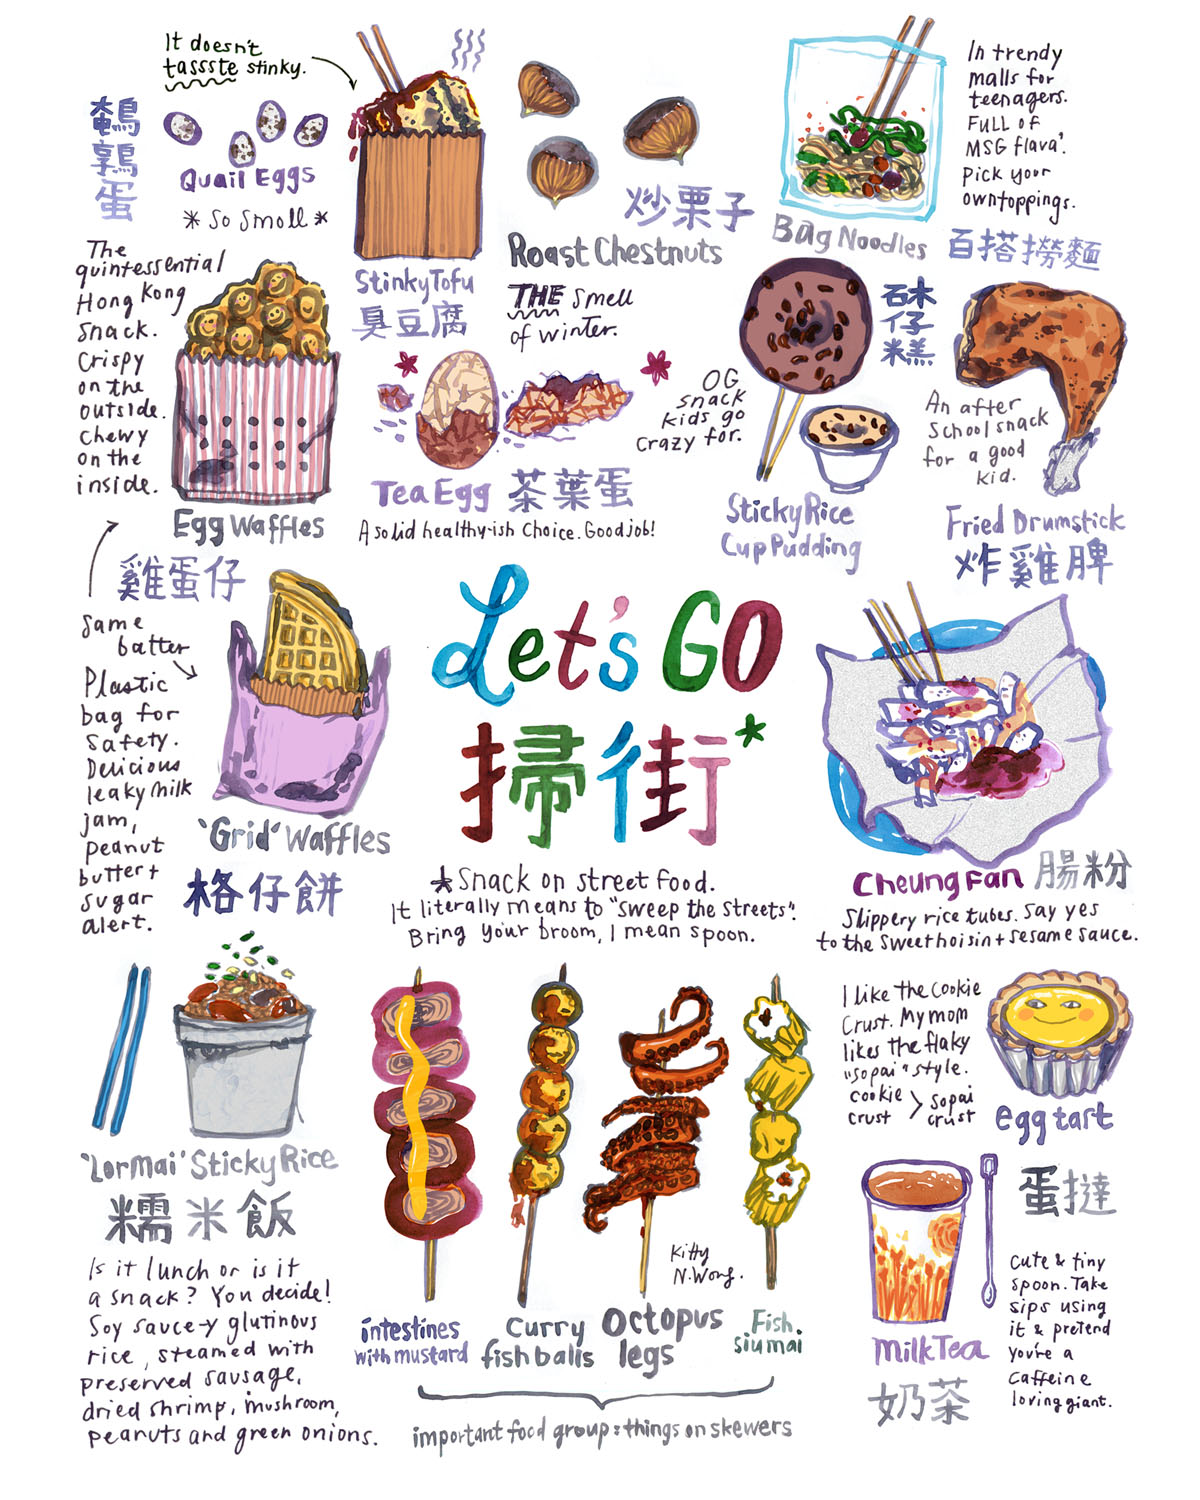 It doesn't
tassste stinky.
鵪鶉蛋
Quail Eggs
* so smoll *
Stinky Tofu
臭豆腐
炒栗子
Roast Chestnuts
THE smell
of winter.
In trendy
malls for
teenagers.
FULL of
MSG flava'.
Pick your
own toppings.
Bag Noodles
百搭撈麵
The
quintessential
Hong Kong
snack.
Crispy
on the
outside.
chewy
on the
inside.
Egg Waffles
雞蛋仔
Tea Egg 茶葉蛋
A solid healthy-ish choice. Good job!
砵仔糕
OG
snack
kids go
crazy for.
Sticky Rice
Cup Pudding
An after
school snack
for a good
kid.
Fried Drumstick
炸雞脾
same
batter
Plastic
bag for
safety.
Delicious
leaky milk
jam,
peanut
butter +
sugar
alert.
'Grid' Waffles
格仔餅
Let's GO
掃街*
* Snack on street food.
It literally means to "sweep the streets".
Bring your broom, I mean spoon.
Cheung Fan 腸粉
Slippery rice tubes. Say yes
to the sweet hoisin + sesame sauce.
'Lor Mai' Sticky Rice
糯米飯
Is it lunch or is it
a snack? You decide!
Soy sauce-y glutinous
rice, steamed with
preserved sausage,
dried shrimp, mushroom,
peanuts and green onions.
intestines
with mustard
Curry
fish balls
Octopus
legs
Fish
siu mai
Kitty
N. Wong.
important food group: things on skewers
I like the cookie
crust. My mom
likes the flaky
"sopai" style.
cookie
crust
>
sopai
crust
egg tart
蛋撻
Milk Tea
奶茶
Cute & tiny
spoon. Take
sips using
it & pretend
you're a
caffeine
loving giant.